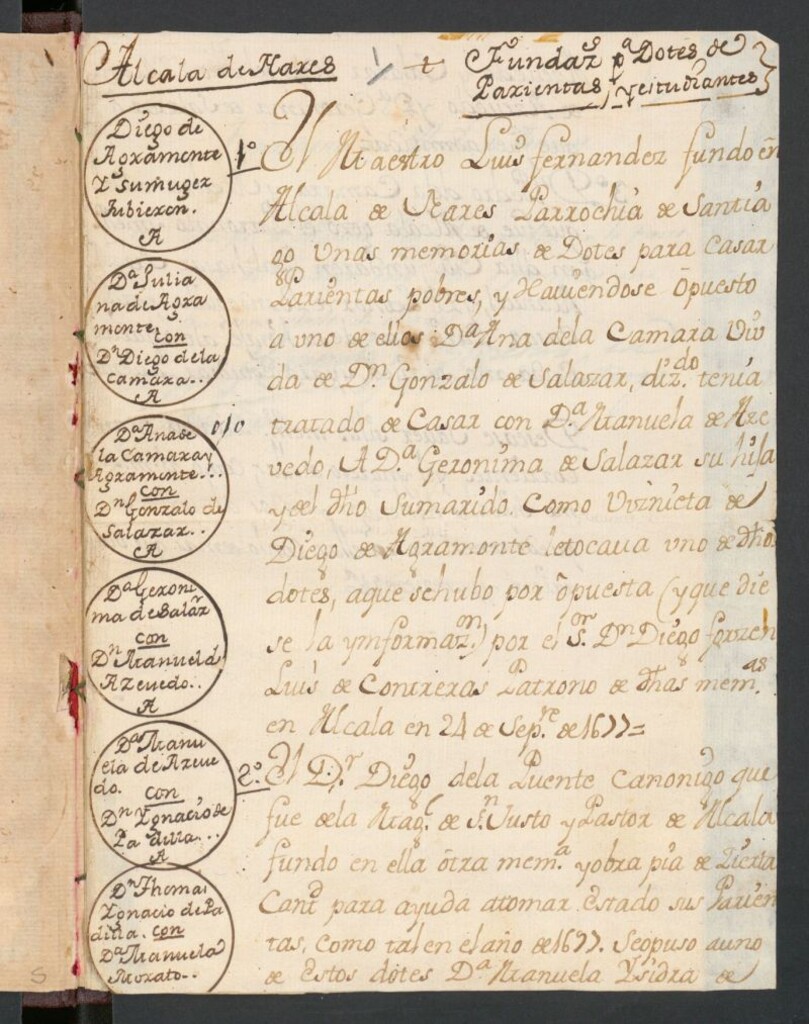 Alcala de Nares
+
Fundazn. pa. Dotes de
Parientas, y estudiantes
Diego de
Agramonte
Y su muger
hubieron.
A
Da. Julia
na de Agra
monte,
con
Dn. Diego de la
Camara..
A
Da. Ana de
la Camara y
Agramonte...
con
Dn. Gonzalo de
Salazar..
A
Da. Geroni
ma de Salazr.
con
Dn. Manuel d
Azevedo..
A
Da. Manu
ela de Azeve
do.
con
Dn. Ygnacio de
Padilla...
A
Dn. Thomas
Ygnacio de Pa
dilla. con
Da. Manuela
Morato..
1o. El Maestro Luis fernandez fundo en
Alcala de Nares Parrochia de Santia
go Vnas memorias de Dotes para Casar
Parientas pobres, y Hauiendose opuesto
à vno de ellos Da. Ana dela Camara Viu
da de Dn. Gonzalo de Salazar, dizdo. tenia
tratado de Casar con Da. Manuela de Aze
vedo, A Da. Geronima de Salazar su hija
y del dho Su marido. Como Viznieta de
Diego de Agramonte le tocaua vno de dhos
dotes, aque se hubo por opuesta (y que die
se la ynformazn.) por el Sor. Dn. Diego
Luis de Contreras Patrono de dhas memas.
en Alcala en 24 de Sepre. de 1677=
2o. El Dr. Diego dela Puente Canonigo que
fue dela Magl. de Sn. Justo y Pastor de Alcala
fundo en ella otra mema. y obra pia de Zierta
Cantd para ayuda atomar Estado sus Parien
tas, Como tal en el año de 1677. Seopuso auno
de Estos dotes Da. Manuela Ysidra de